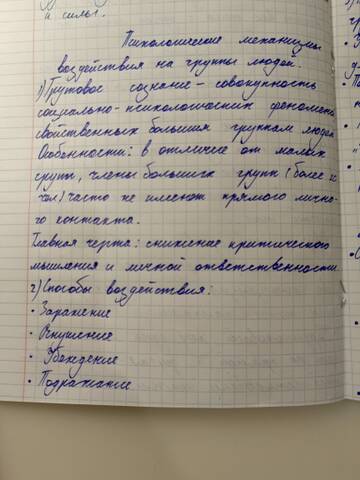 и силы.
Психологические механизмы
воздействия на группы людей.
1) Групповое сознание - совокупность
социально-психологических феномено
свойственных большим группам людей
Особенности: в отличие от малых
групп, члены больших групп (более 20
чел) часто не имеют прямого лично-
го контакта.
Главная черта: снижение критического
мышления и личной ответственности
2) Способы воздействия:
• Заражение
• Внушение
• Убеждение
• Подражание